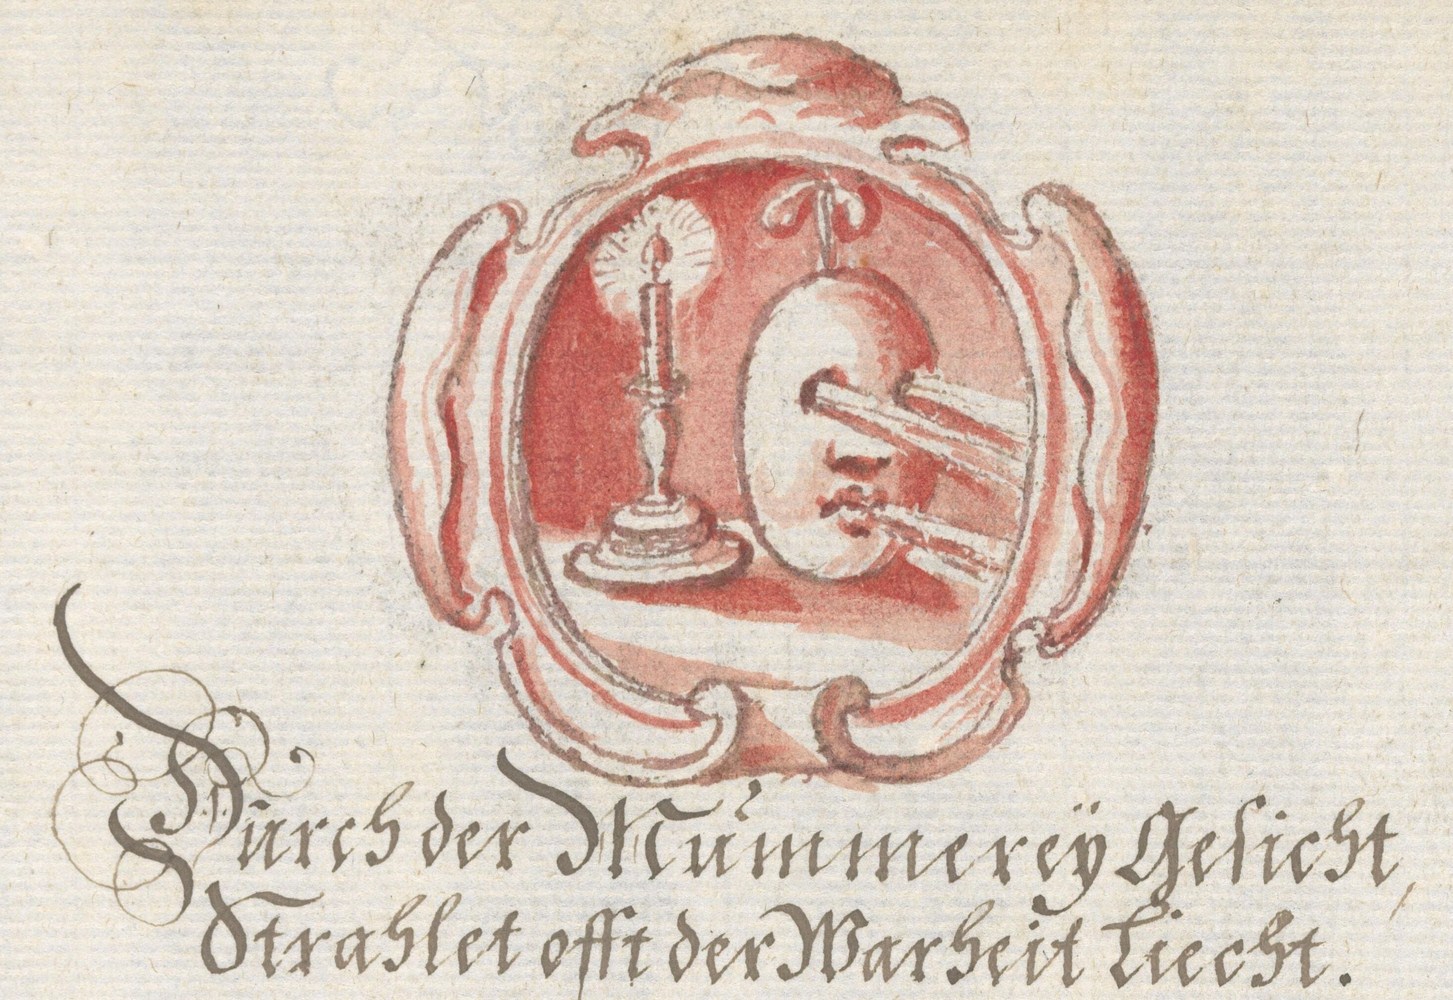 Durch der Mummereÿ Gesicht,
Strahlet offt der Warheit Liecht.